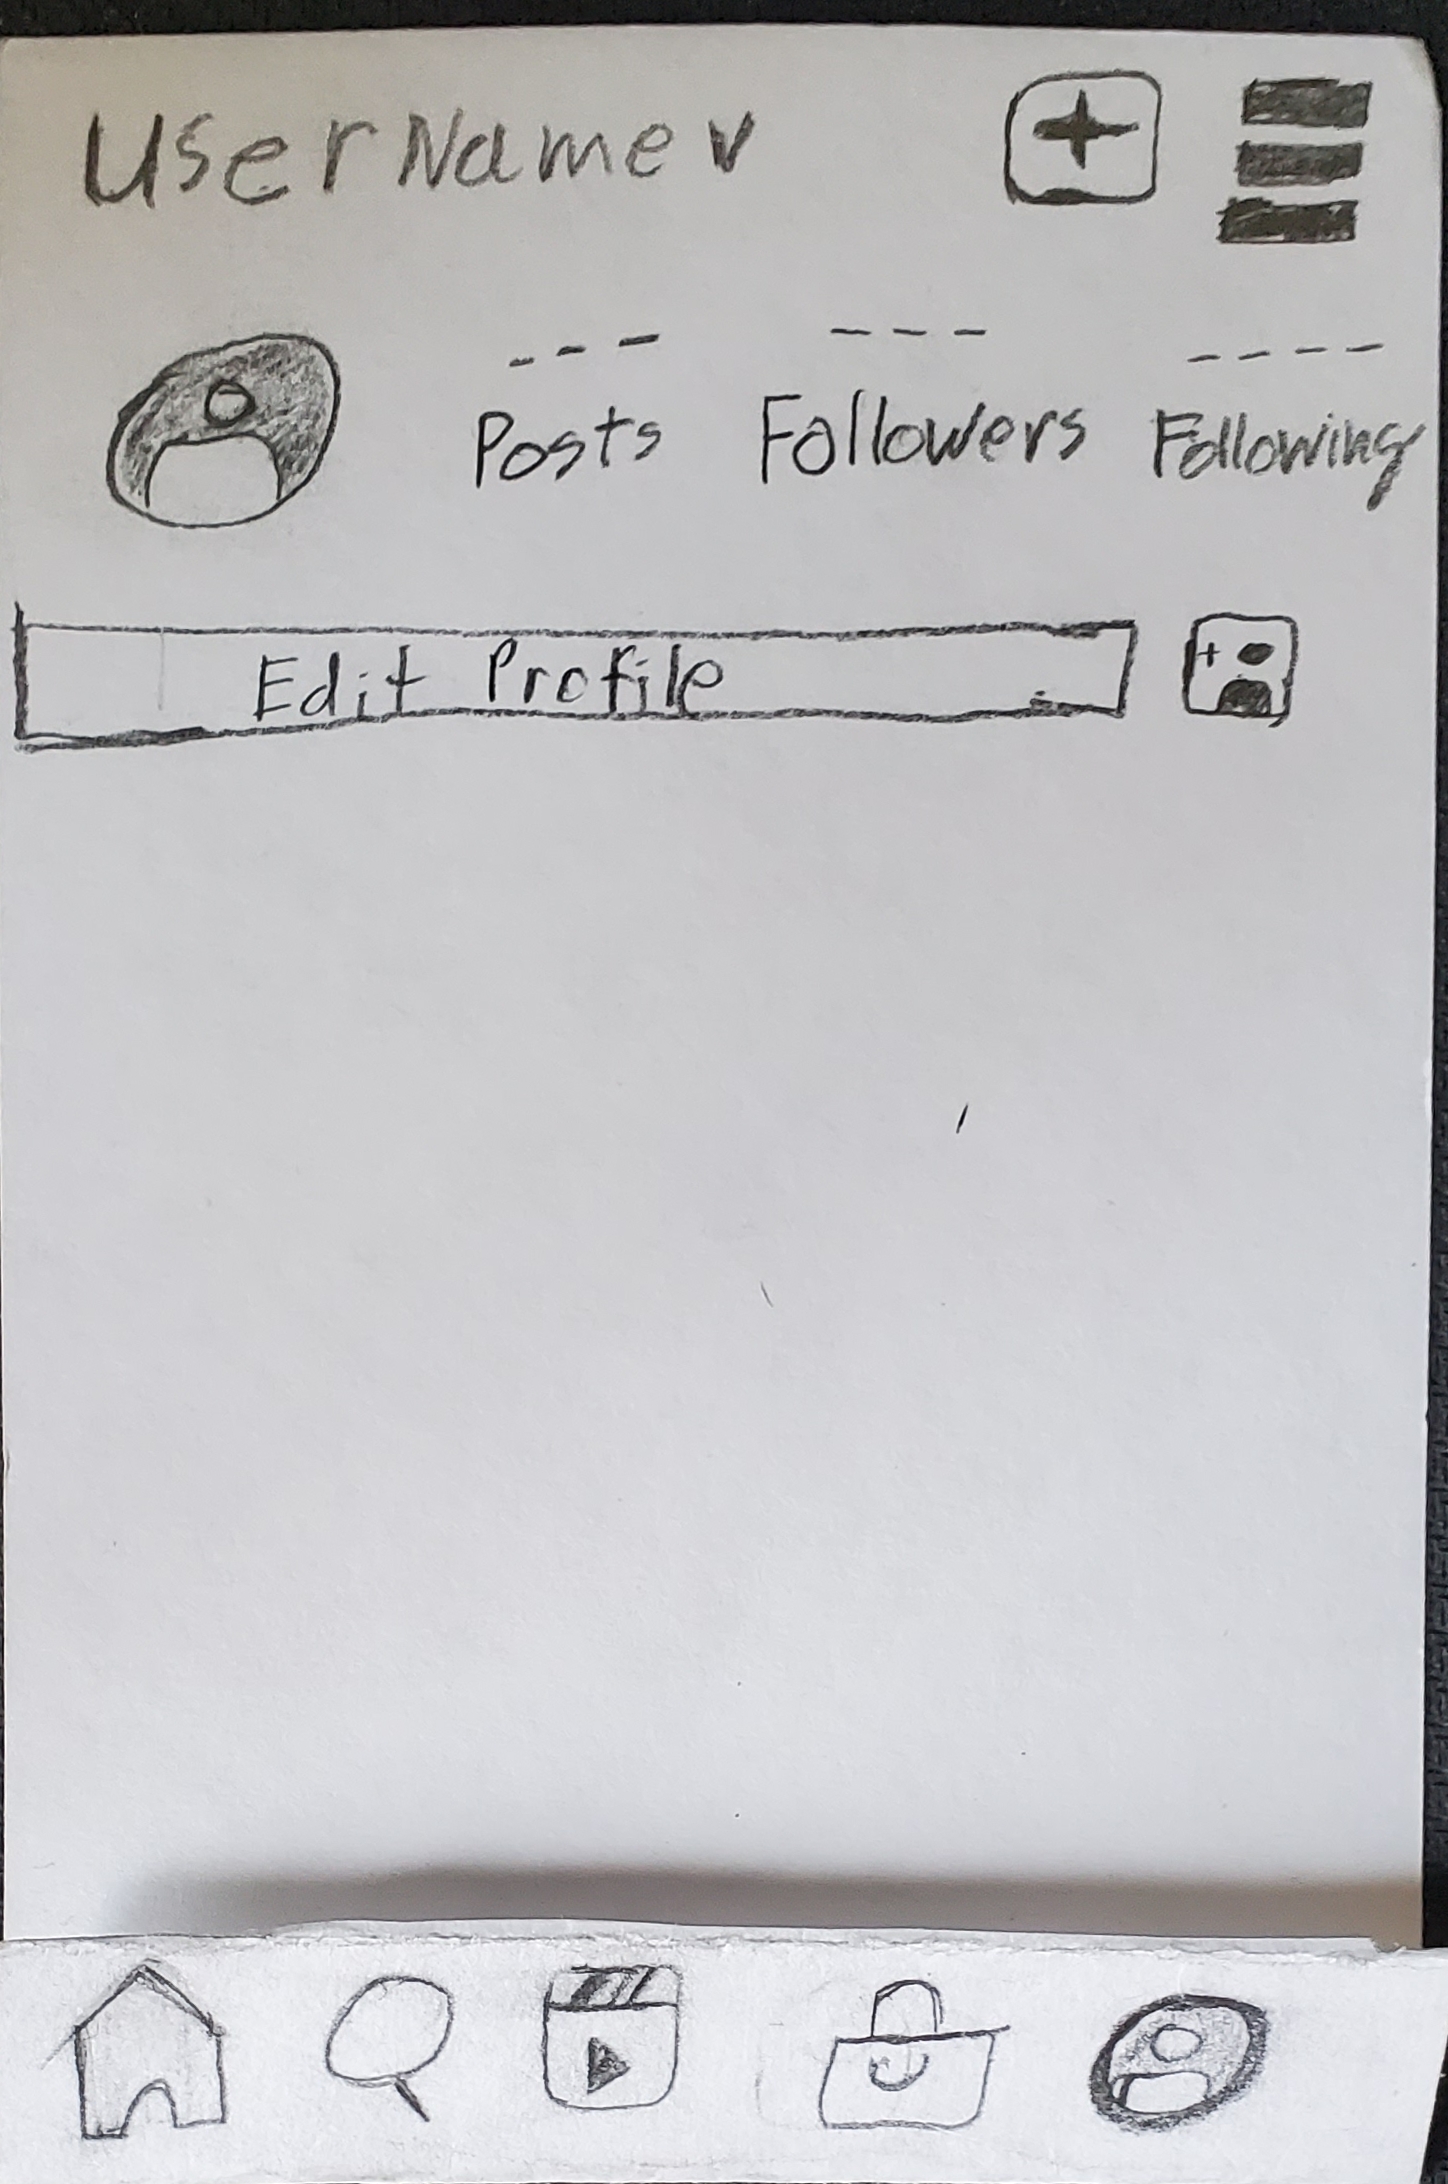 UserName v
--- --- ----
Posts Followers Following
Edit Profile